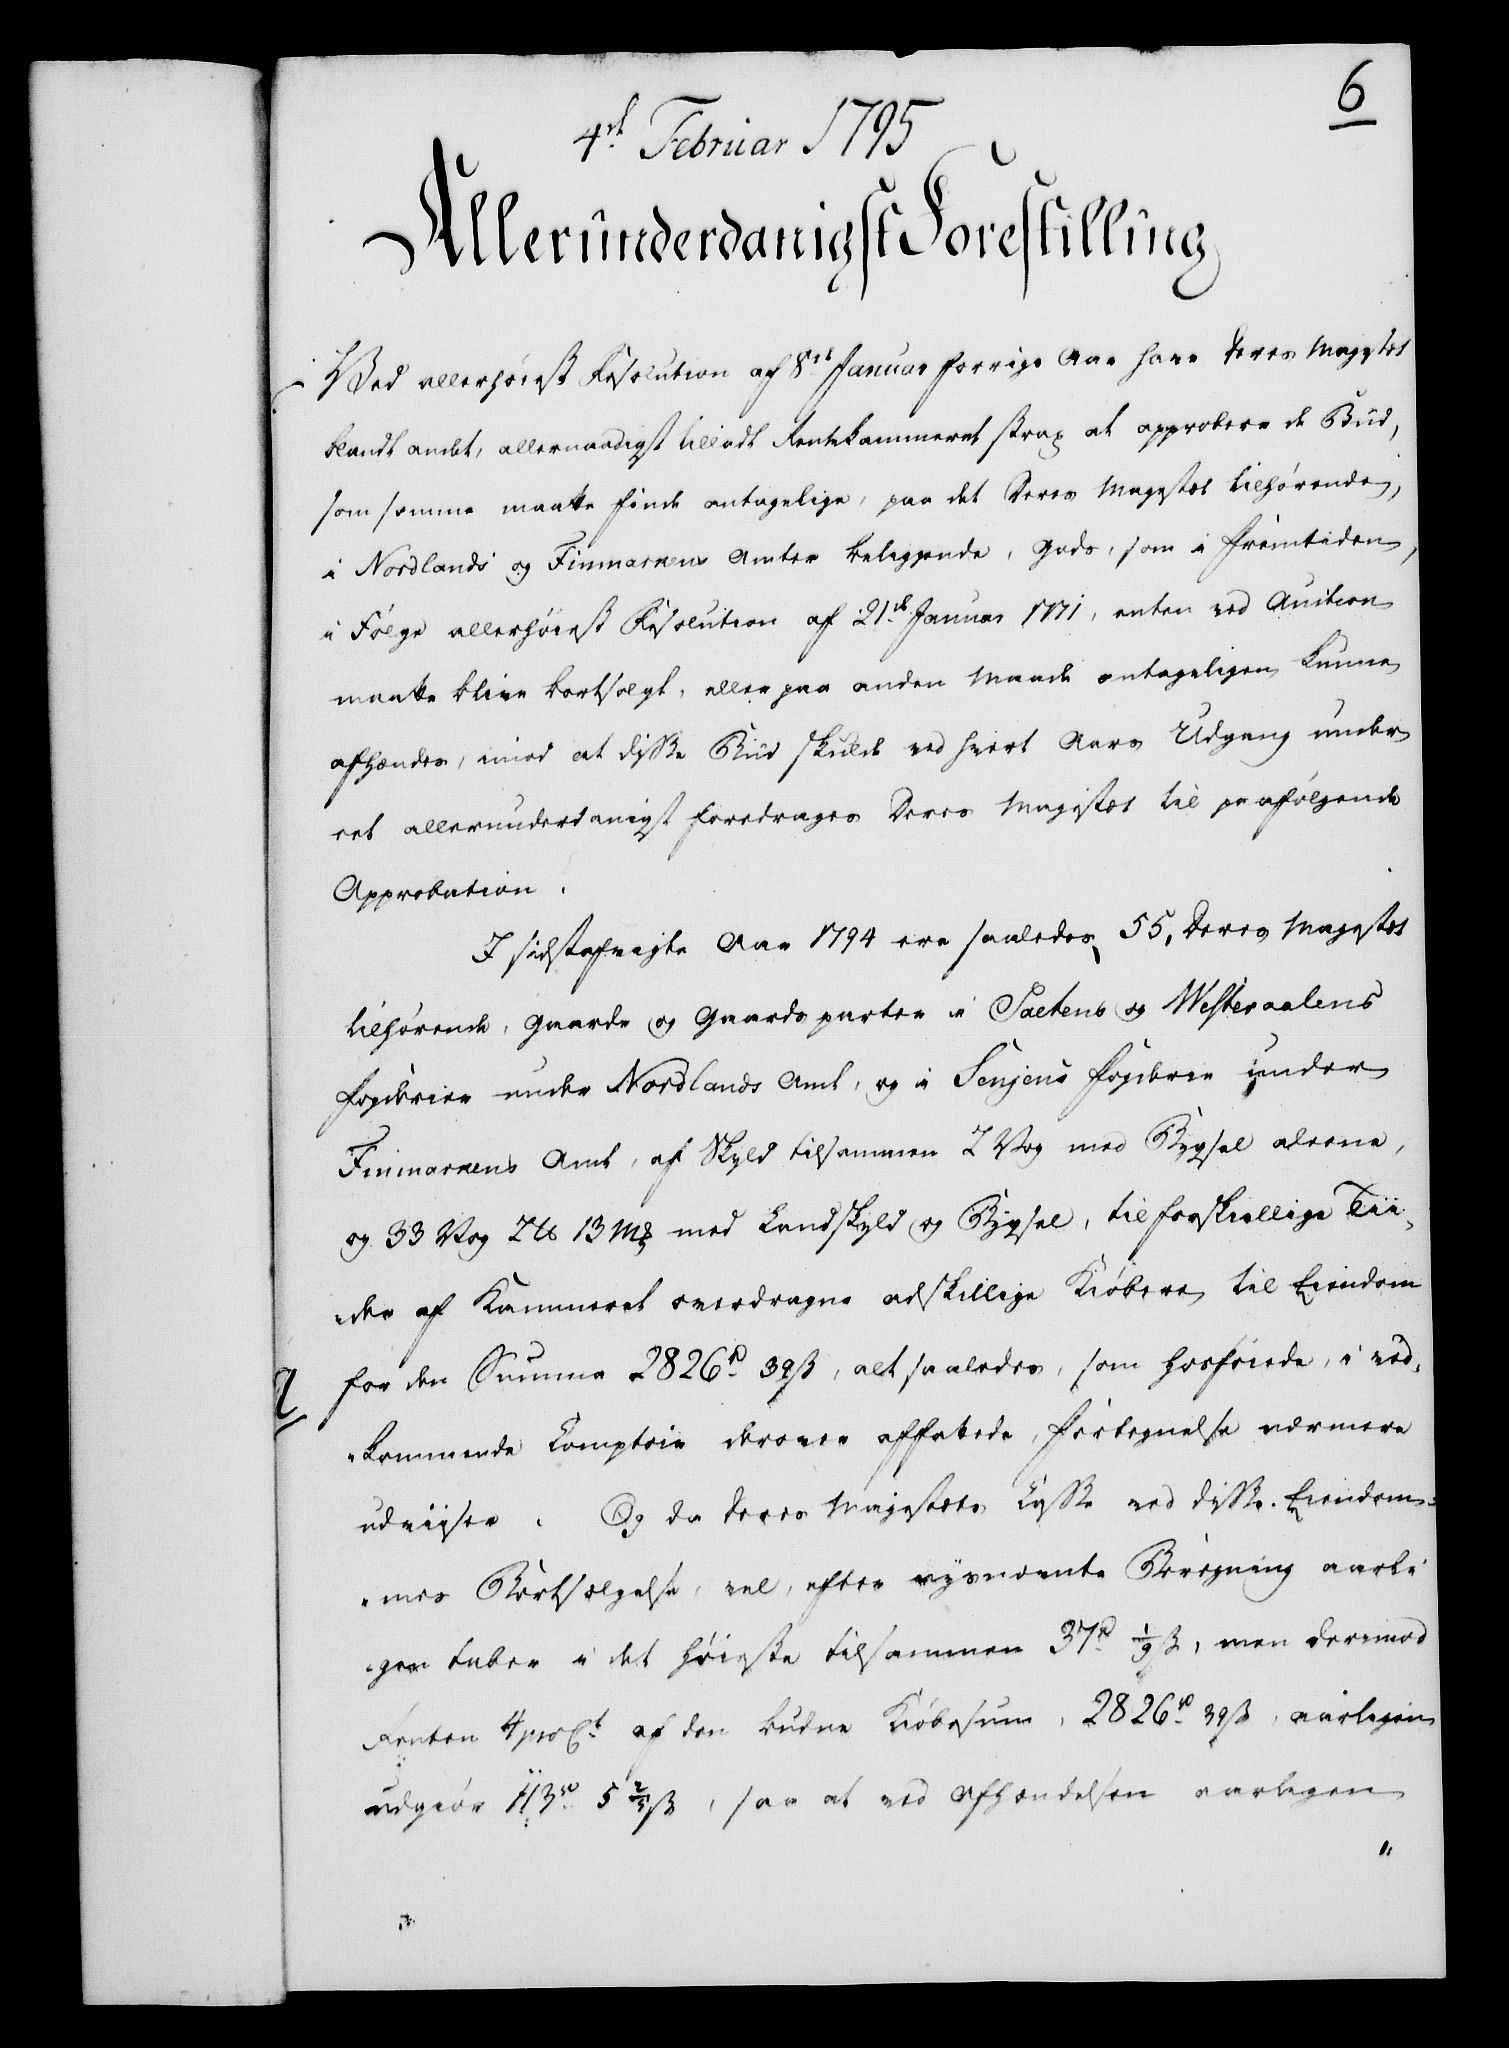 6
4de Februar 1795
Allerunderdanigst Forestilling
Ved allerhøiest Resolution af 8de Januar forrige Aar have Deres Majestet
blandt andet, allernaadigst tilladt Rentekammeret strax at approbere de Bud,
som samme maatte finde antagelige, paa det Deres Majestet tilhørende,
i Nordlands og Finmarkens Amter beliggende, Gods, som i Fremtiden,
i Følge allerhøiest Resolution af 21de Januar 1771, enten ved Auction
maatte blive bortsolgt, eller paa anden Maade antageligen kunne
afhændes, imod at disse Bud skulde ved hvert Aars Udgang under
eet allerunderdanigst foredrages Deres Majestet til paafølgende
Approbation.
I sidstafvigte Aar 1794 ere saaledes 55, Deres Majestet
tilhørende, Gaarde og Gaardsparter i Saltens og Westeraalens
Fogderier under Nordlands Amt, og i Senjens Fogderie under
Finmarkens Amt, af Skyld tilsammen 2 Vog med Bygsel alene,
og 33 Vog 2 ℔ 13 Mk med Landskyld og Bygsel, til forskiellige Tii-
der af Kammeret overdragne adskillige Kiøbere til Eiendom
for den Summa 2826 rd 39 ß, alt saaledes, som hosføiede, i ved-
kommende Comptoir derover affattede, Fortegnelse nærmere
udviiser. Og da Deres Majestets Casse ved disse Eiendom-
mes Bortsælgelse, vel, efter nysnævnte Beregning aarli-
gen taber i det høieste tilsammen 37 rd 1/9 ß, men derimod
Renten 4 pro Ct af den budne Kiøbesum, 2826 rd 39 ß, aarligen
udgiør 113 rd 5 2/5 ß, saa at ved Afhændelsen aarligen